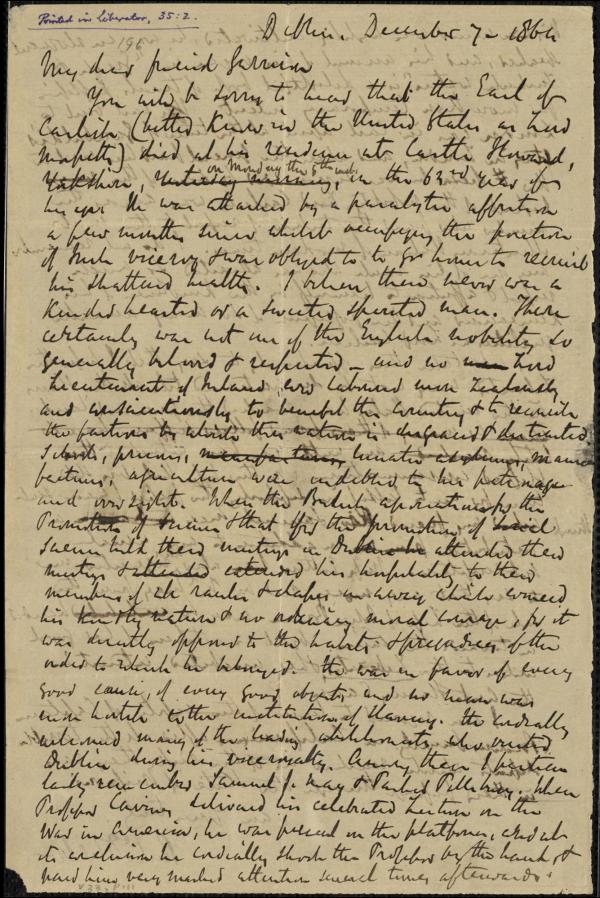 Printed in Liberator, 35:2.
Dublin, December 7 – 1864
My dear friend Garrison
You will be sorry to hear that the Earl of
Carlisle (better known in the United States as Lord
Morpeth) died at his residence at Castle Howard,
Yorkshire, yesterday morning, on Monday the 5th inst. in the 63rd year of
his age. He was attacked by a paralytic affection
a few months since whilst occupying the position
of Irish viceroy & was obliged to to go home to recruit
his shattered health. I believe there never was a
kinder hearted or a sweeter spirited man. There
certainly was not one of the English nobility so
generally beloved & respected – and no Lord
Lieutenant of Ireland ever laboured more zealously
and conscientiously to benefit the country & to reconcile
the factions by which this nation is disgraced & distracted.
Schools, prisons, manufactures, lunatic asylums, manu-
factures, agriculture were indebted to his patronage
and oversight. When the British association for the
Promotion of Science & that for the promotion of Social
Science held their meetings in Dublin he attended their
meetings & attended extended his hospitality to their
members of all ranks & shades in a way which evinced
his kindly nature & no ordinary moral courage, for it
was directly opposed to the habits & prejudices of the
order to which he belonged. He was in favor of every
good cause, of every good object, and no man was
more hostile to the institution of slavery. He cordially
welcomed many of the leading abolitionists who visited
Dublin during his viceroyalty. Among them I particu-
larly remember Samuel J. May & Parker Pillsbury. When
Professor Cairnes delivered his celebrated Lecture on the
War in America, he was present on the platform, and at
its conclusion he cordially shook the Professor by the hand, &
paid him very marked attention several times afterwards.